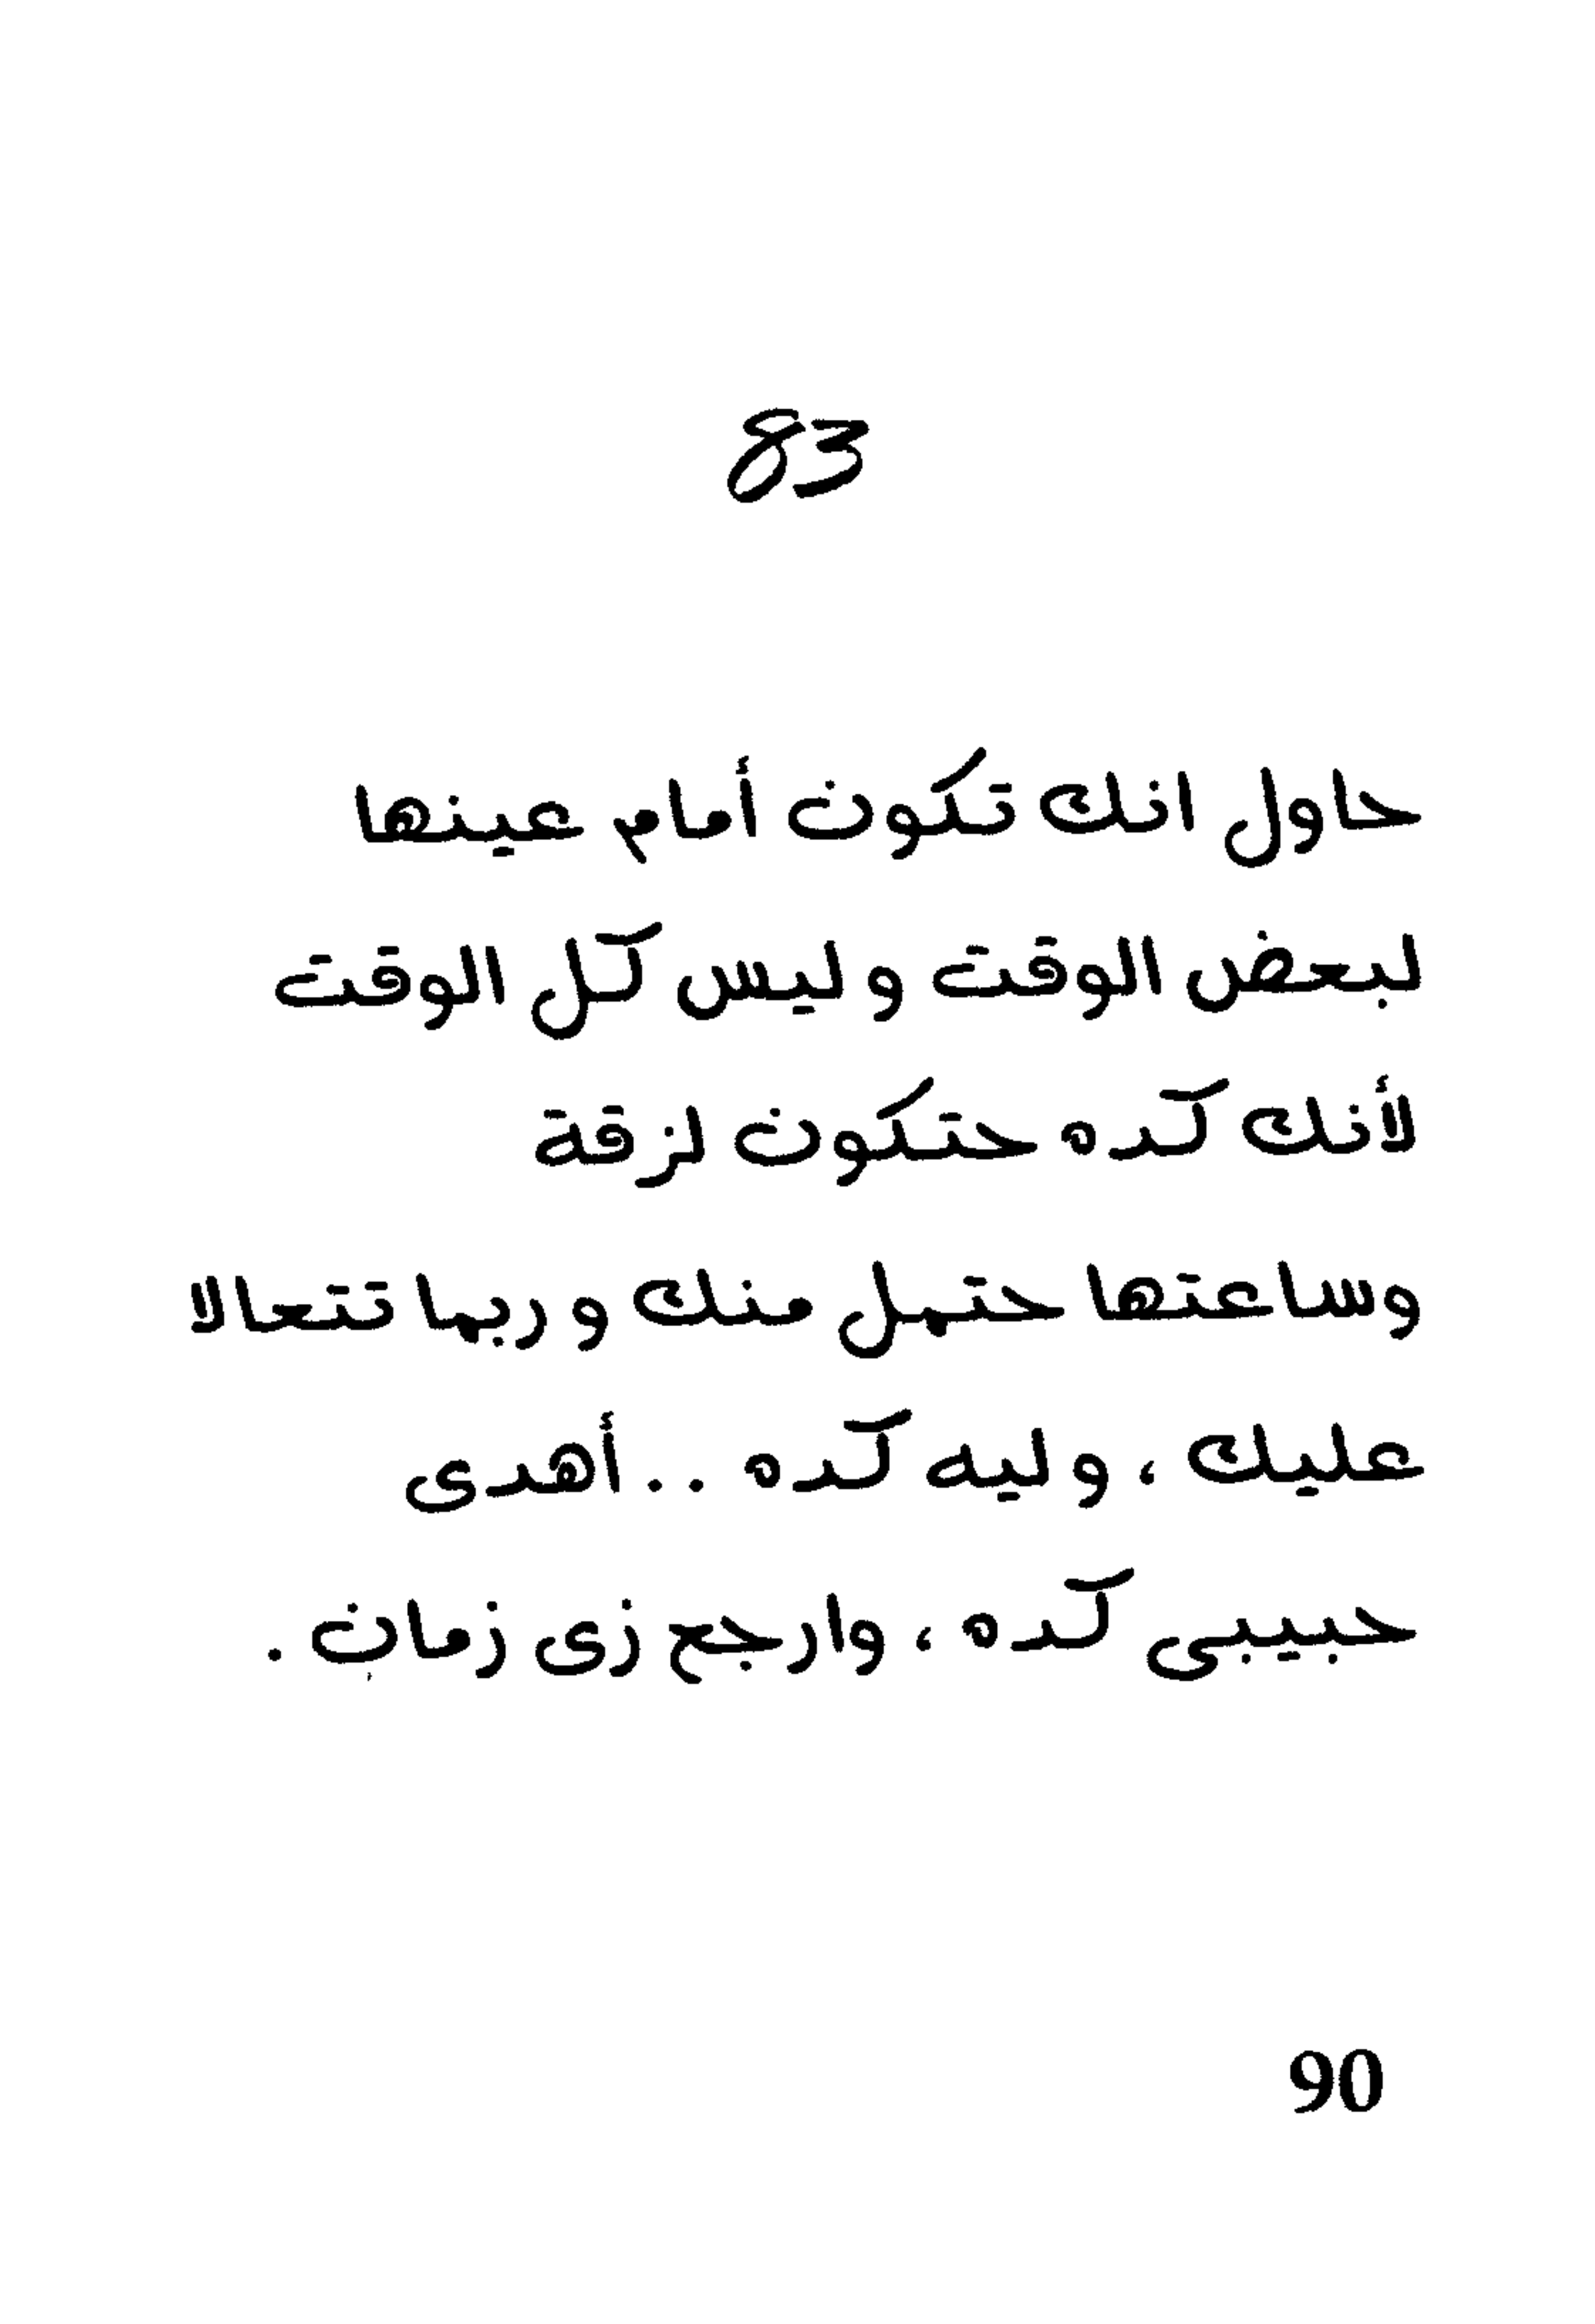 83
حاول انك تكون أمام عينها
لبعض الوقت وليس كل الوقت
لأنك كده حتكون لزقة
وساعتها حتمل منك وربما تتعالا
عليك ، وليه كده . . أهدى
حبيبى كده ، وارجع زى زمان .
90